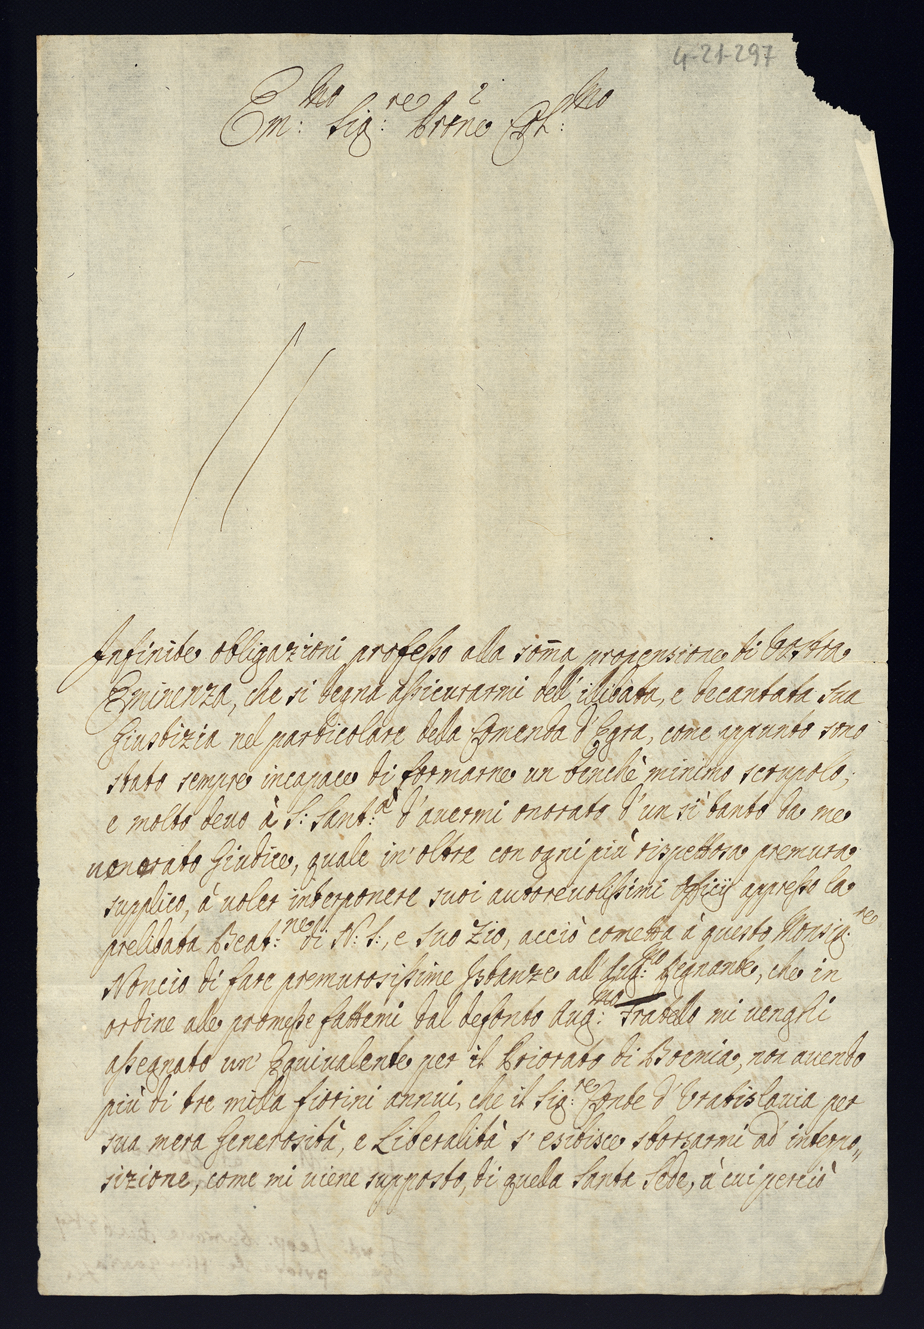 4-21-297
Em:mo Sig:re Prõne Col:mo
Infinite obligazioni professo alla som̃a propensione di Vostra
Eminenza, che si degna assicurarmi dell'illibata, e decantata sua
Giustizia nel particolare della Comenda d'Egra, come appunto sono
stato sempre incapace di formarne un benchè minimo scrupolo;
e molto devo à S: Sant:à d'avermi onorato d'un sì tanto da me
venerato Giudice, quale in oltre con ogni più rispettosa premura
supplico, à voler interponere suoi autorevolissimi officij appresso la
prelibata Beat:ne di N: S:, e suo Zio, acciò cometta à questo Monsig:re
Noncio di fare premurosissime Istanze all'Aug:to Regnante, che in
ordine alle promesse fattemi dal defonto Aug:mo Fratello mi venghi
assegnato un' Equivalente per il Priorato di Boemia, non avendo
più di tre milla fiorini annui, che il Sig:re Conte d'Vratislavia per
sua mera Generosità, e Liberalità s'esibisce sborsarmi ad interpo„
sizione, come mi viene supposto, di quella Santa Sede, à cui perciò